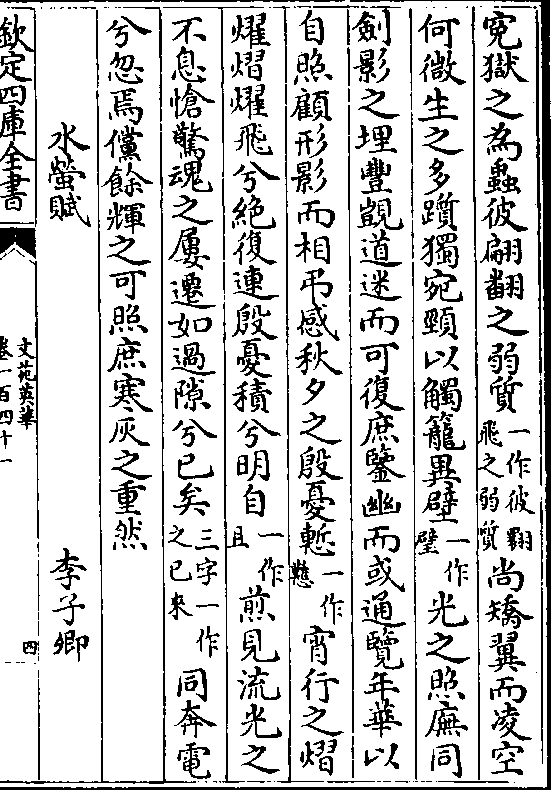 寃獄之為蟲彼翩翻之弱質一作彼翾飛之弱質尚矯翼而凌空
何微生之多躓獨宛頸以觸籠異壁一作璧光之照廡同
劍影之埋豐覬道迷而可復庶鑒幽而或通覽年華以
自照顧形影而相弔感秋夕之殷憂慙一作懟宵行之熠
燿熠燿飛兮絶復連殷憂積兮明自一作且煎見流光之
不息愴驚魂之屢遷如過隙兮已矣三字一作之已來同奔電
兮忽焉儻餘輝之可照庶寒灰之重然
水螢賦 李子卿
欽定四庫全書
文苑英華
卷一百四十一
四